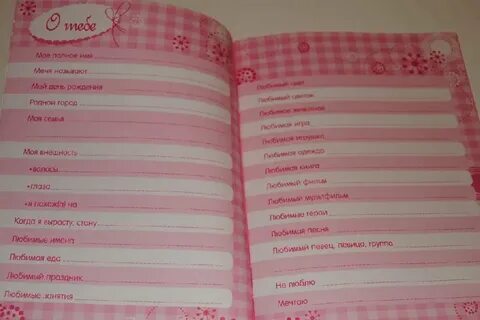 О тебе
Мое полное имя
Меня называют
Мой день рождения
Родной город
Моя семья
Моя внешность
•волосы
•глаза
•я похож(а) на
Когда я вырасту, стану
Любимые имена
Любимая еда
Любимый праздник
Любимые занятия
Любимый цвет
Любимый цветок
Любимое животное
Любимая игра
Любимая игрушка
Любимая одежда
Любимая книга
Любимый фильм
Любимый мультфильм
Любимые герои
Любимая песня
Любимый певец, певица, группа
Не люблю
Мечтаю